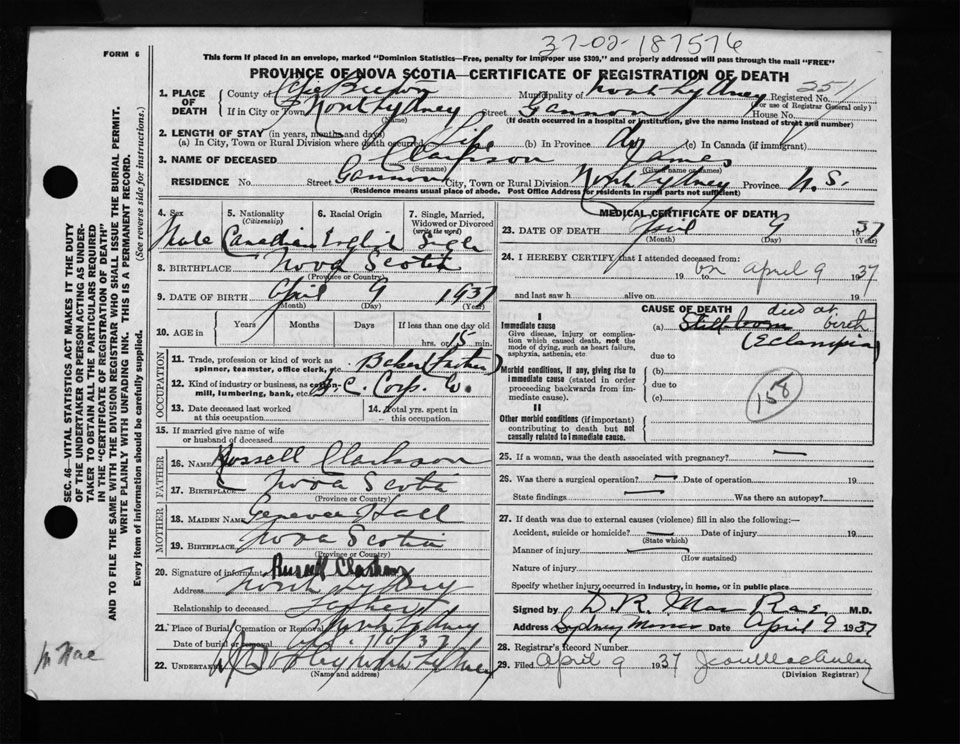 37-02-187576
FORM 6
This form if placed in an envelope, marked "Dominion Statistics—Free, penalty for improper use $300," and properly addressed will pass through the mail "FREE"
PROVINCE OF NOVA SCOTIA—CERTIFICATE OF REGISTRATION OF DEATH
1. PLACE OF DEATH
County of Cape Breton Municipality of North Sydney Registered No. 2511
(For use of Registrar General only)
If in City or Town North Sydney Street Gannon House No.
(Name) (If death occurred in a hospital or institution, give the name instead of street and number)
2. LENGTH OF STAY (in years, months and days)
(a) In City, Town or Rural Division where death occurred Life (b) In Province do (c) In Canada (if immigrant)
3. NAME OF DECEASED Clarkson James
(Surname) (Given name or names)
RESIDENCE No. Street Gannon City, Town or Rural Division North Sydney Province N.S.
(Residence means usual place of abode. Post Office Address for residents in rural parts not sufficient)
4. Sex 5. Nationality 6. Racial Origin 7. Single, Married,
(Citizenship) Widowed or Divorced
(write the word)
Male Canadian English Single
8. BIRTHPLACE Nova Scotia
(Province or Country)
9. DATE OF BIRTH April 9 1937
(Month) (Day) (Year)
10. AGE in Years Months Days If less than one day old
hrs. or 15 min.
OCCUPATION
11. Trade, profession or kind of work as
spinner, teamster, office clerk, etc. Baker (Father)
12. Kind of industry or business, as cotton-
mill, lumbering, bank, etc. Corp. Co.
13. Date deceased last worked
at this occupation
14. Total yrs. spent in
this occupation
15. If married give name of wife
or husband of deceased
FATHER
16. NAME Russell Clarkson
17. Birthplace Nova Scotia
(Province or Country)
MOTHER
18. MAIDEN NAME Genevee Hall
19. Birthplace Nova Scotia
(Province or Country)
20. Signature of informant Russell Clarkson
Address North Sydney
Relationship to deceased Father
21. Place of Burial, Cremation or Removal North Sydney
Date of burial or removal 10 37
22. UNDERTAKER North Sydney
(Name and address)
MEDICAL CERTIFICATE OF DEATH
23. DATE OF DEATH April 9 1937
(Month) (Day) (Year)
24. I HEREBY CERTIFY that I attended deceased from:
19 to on April 9 1937
and last saw h alive on 19
CAUSE OF DEATH
I
Immediate cause
Give disease, injury or complication which caused death, not the mode of dying, such as heart failure, asphyxia, asthenia, etc.
(a) Stillborn died at birth
(Eclampsia)
due to
Morbid conditions, if any, giving rise to immediate cause (stated in order proceeding backwards from immediate cause).
(b)
due to
(c)
158
II
Other morbid conditions (if important) contributing to death but not causally related to immediate cause.
25. If a woman, was the death associated with pregnancy? —
26. Was there a surgical operation? — Date of operation 19
State findings — Was there an autopsy?
27. If death was due to external causes (violence) fill in also the following:—
Accident, suicide or homicide? — Date of injury 19
(State which)
Manner of injury
(How sustained)
Nature of injury
Specify whether injury occurred in industry, in home, or in public place
Signed by D. R. MacRae, M.D.
Address Sydney Mines Date April 9 1937
28. Registrar's Record Number
29. Filed April 9 1937
(Division Registrar)
SEC. 46—VITAL STATISTICS ACT MAKES IT THE DUTY
OF THE UNDERTAKER OR PERSON ACTING AS UNDER-
TAKER TO OBTAIN ALL THE PARTICULARS REQUIRED
IN THE "CERTIFICATE OF REGISTRATION OF DEATH"
AND TO FILE THE SAME WITH THE DIVISION REGISTRAR WHO SHALL ISSUE THE BURIAL PERMIT.
WRITE PLAINLY WITH UNFADING INK. THIS IS A PERMANENT RECORD.
Every item of information should be carefully supplied. (See reverse side for instructions.)